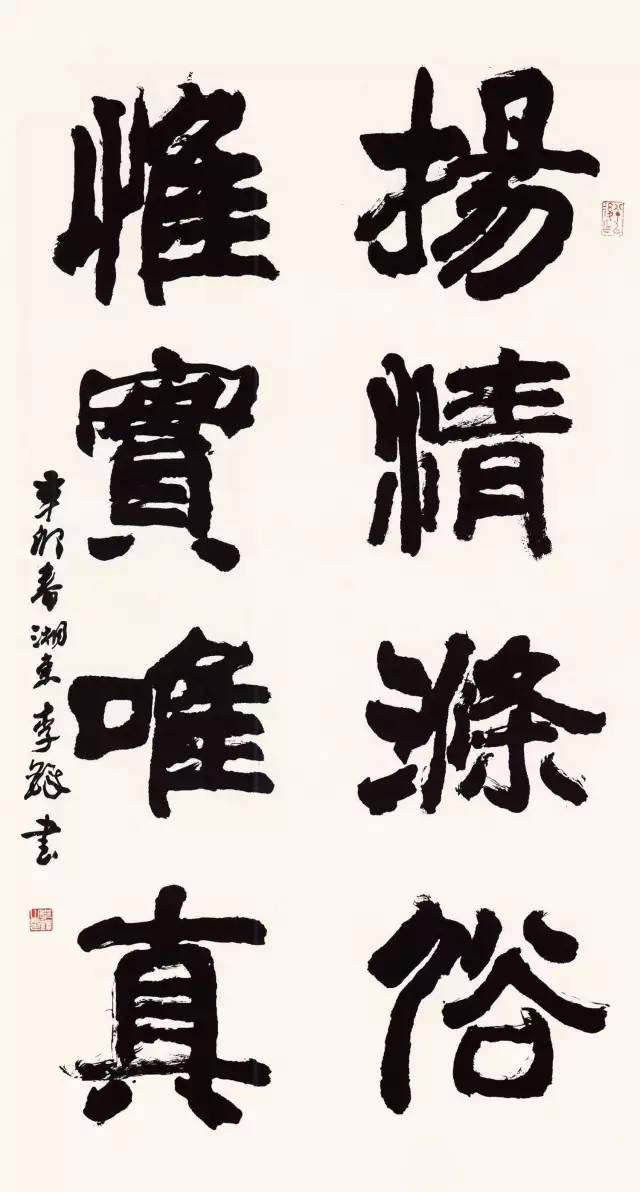 揚情滌俗
惟實唯真
辛卯春湖東李
書